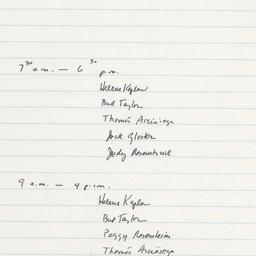 7 30 a.m. — 6 30 p.m.
Helene Kaplan
Bud Taylor
Thomás Arciniega
Jack Gloster
Judy Rosenheim
9 a.m. — 4 p.m.
Helene Kaplan
Bud Taylor
Peggy Rosenheim
Thomás Arciniega